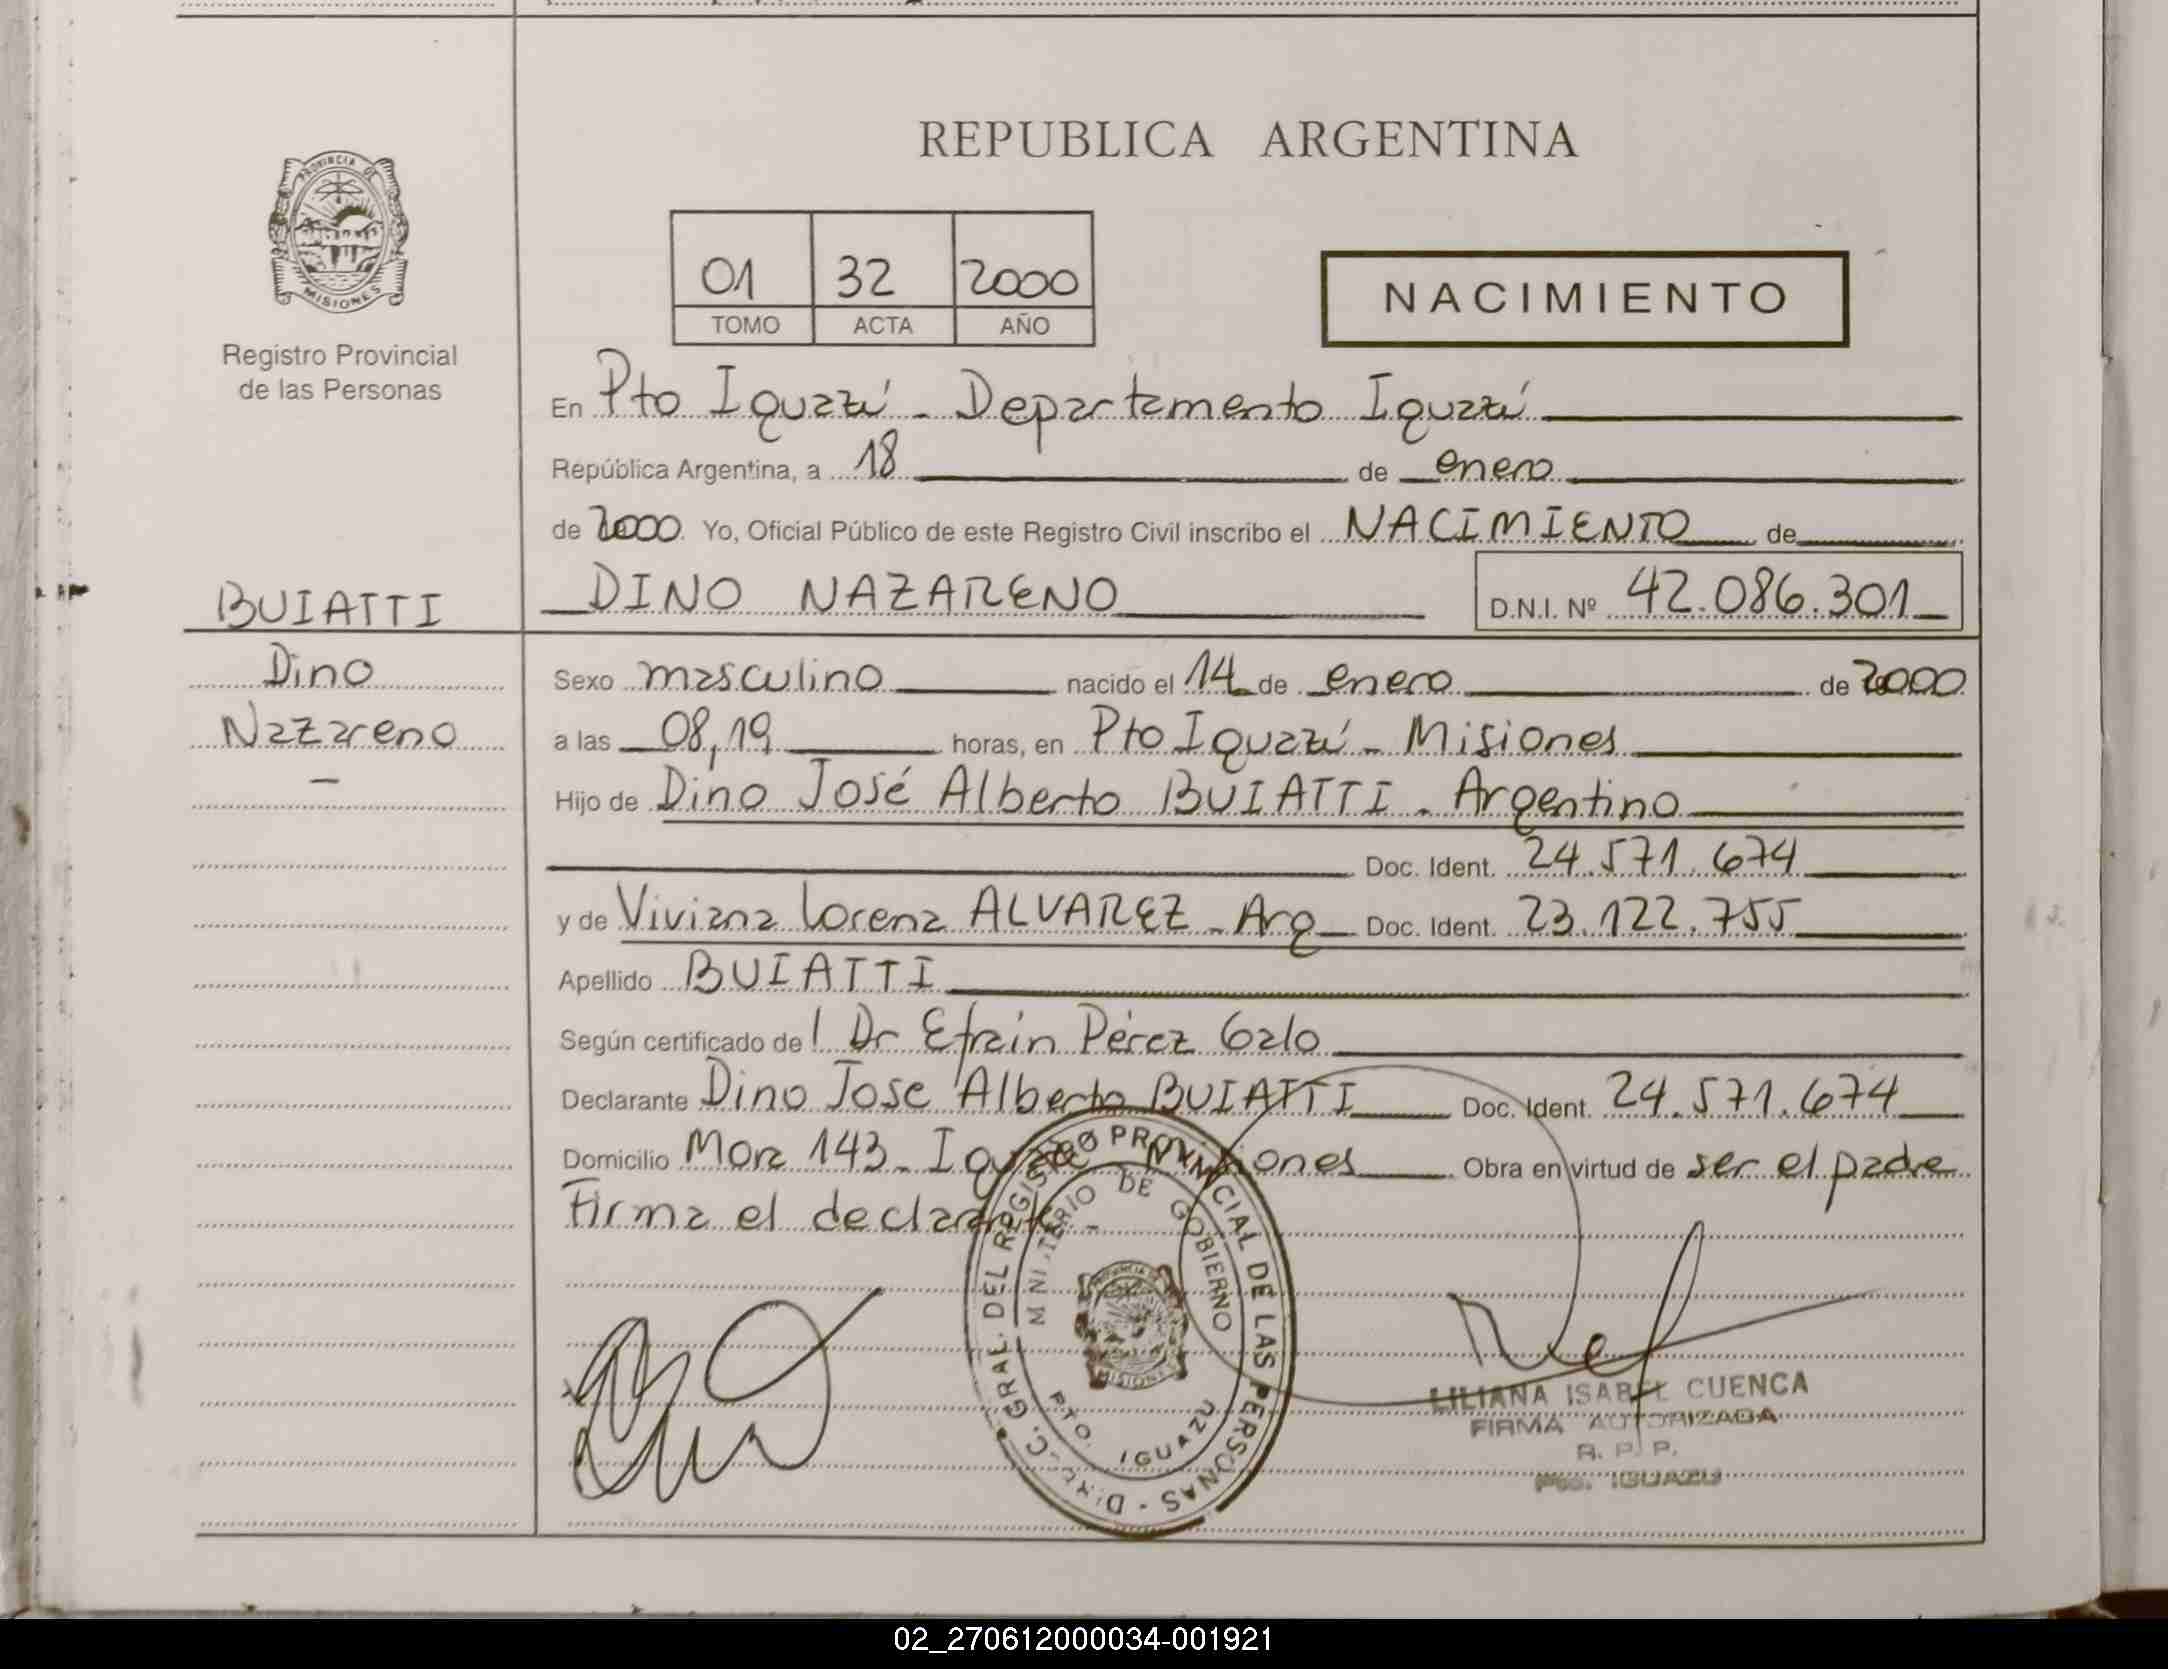 REPUBLICA ARGENTINA
PROVINCIA DE
MISIONES
Registro Provincial
de las Personas
01 32 2000
TOMO ACTA AÑO
NACIMIENTO
En Pto Iguazú - Departamento Iguazú
República Argentina, a 18 de enero
de 2000 Yo, Oficial Público de este Registro Civil inscribo el NACIMIENTO de
BUIATTI
DINO NAZARENO D.N.I. Nº 42.086.301
Dino
Nazareno
-
Sexo masculino nacido el 14 de enero de 2000
a las 08,19 horas, en Pto Iguazú - Misiones
Hijo de Dino José Alberto BUIATTI - Argentino
Doc. Ident. 24.571.674
y de Viviana Lorena ALVAREZ - Arg Doc. Ident. 23.122.755
Apellido BUIATTI
Según certificado de l Dr Efraín Pérez Galo
Declarante Dino Jose Alberto BUIATTI Doc. Ident. 24.571.674
Domicilio Mora 143 - Obra en virtud de ser el padre
Firma el declarante -
GRAL. DEL REGISTRO PROVINCIAL DE LAS PERSONAS
MINISTERIO DE GOBIERNO
PTO. IGUAZU
LILIANA ISABEL CUENCA
FIRMA AUTORIZADA
R. P. P.
Pto. IGUAZU
02_270612000034-001921